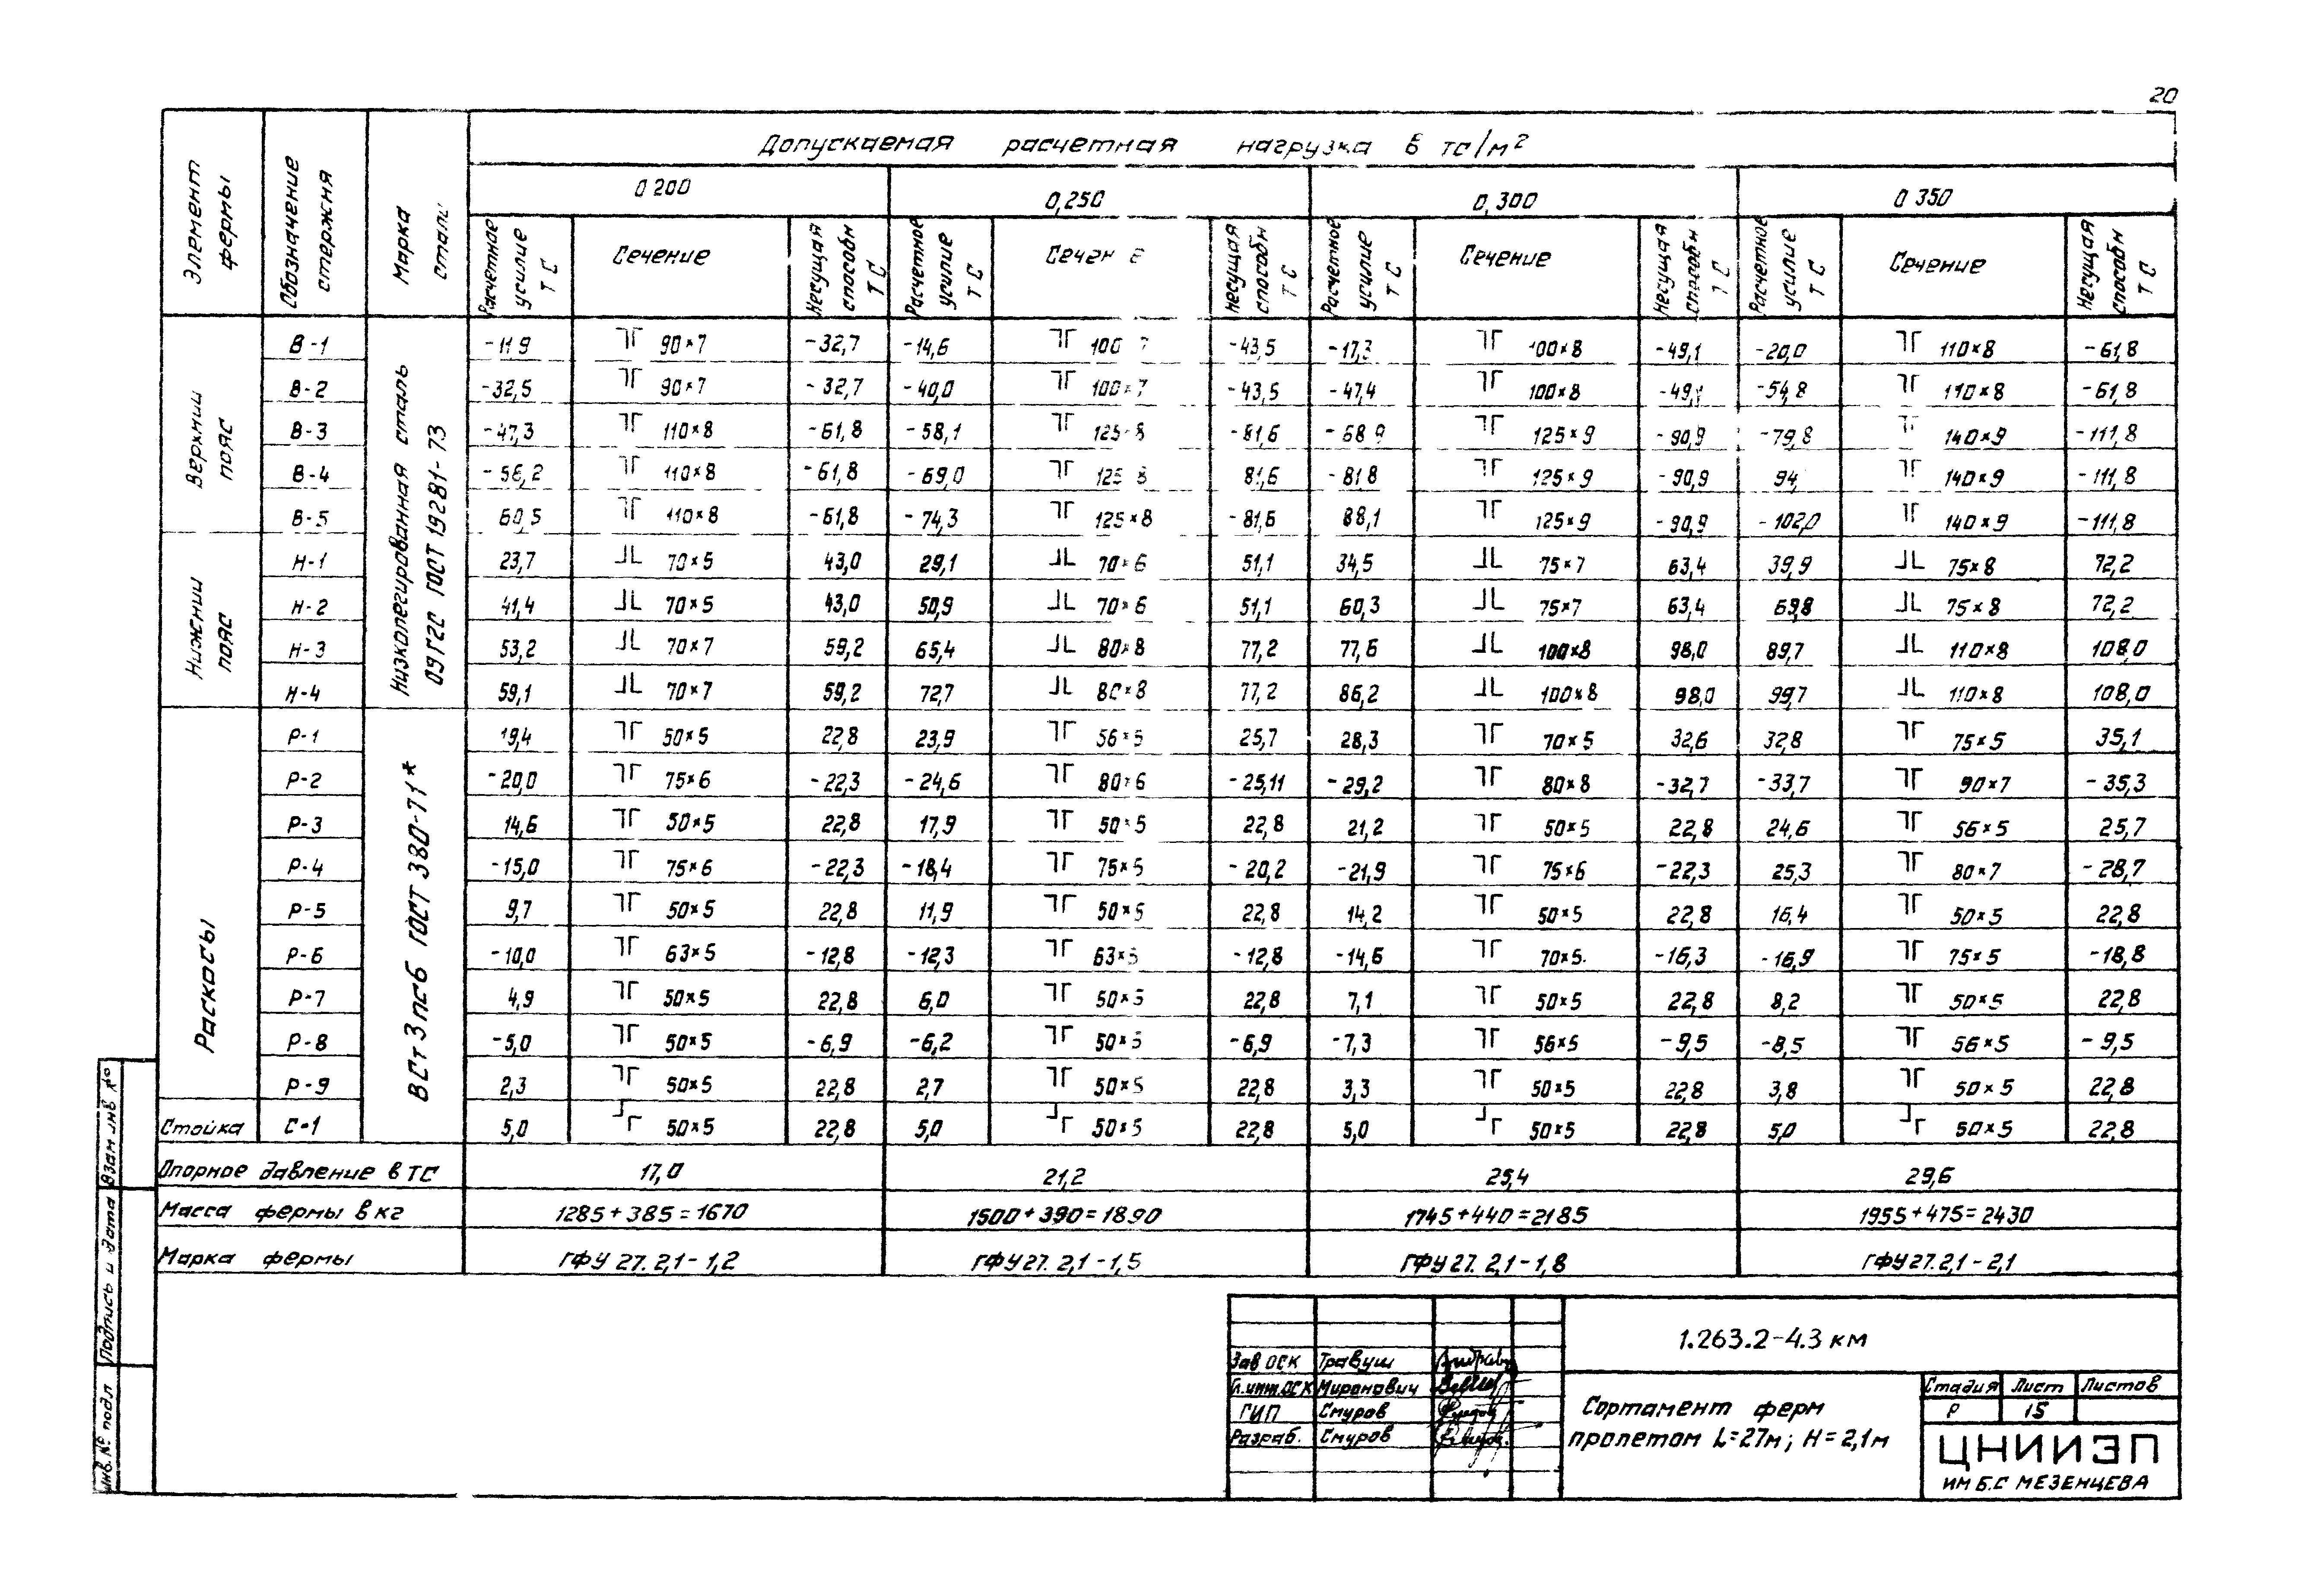 20
Допускаемая расчетная нагрузка в тс/м²
Элемент фермы
Обозначение стержня
Марка стали
0 200
0,250
0,300
0 350
Расчетное усилие ТС
Сечение
Несущая способн ТС
Расчетное усилие ТС
Сечен е
Несущая способн ТС
Расчетное усилие ТС
Сечение
Несущая способн ТС
Расчетное усилие ТС
Сечение
Несущая способн ТС
Верхний пояс
Низколегированная сталь 09Г2С ГОСТ 19281-73
В-1 -11 9 90×7 -32,7 -14,6 100 7 -43,5 -17,3 100×8 -49,1 -20,0 110×8 -61,8
В-2 -32,5 90×7 -32,7 -40,0 100×7 -43,5 -47,4 100×8 -49,1 -54,8 110×8 -61,8
В-3 -47,3 110×8 -61,8 -58,1 125×8 -81,6 -68 9 125×9 -90,9 -79,8 140×9 -111,8
В-4 -56,2 110×8 -61,8 -69,0 125 8 81,6 -81 8 125×9 -90,9 94, 140×9 -111,8
В-5 60,5 110×8 -61,8 -74,3 125×8 -81,6 88,1 125×9 -90,9 -102,0 140×9 -111,8
Нижний пояс
Н-1 23,7 70×5 43,0 29,1 70×6 51,1 34,5 75×7 63,4 39,9 75×8 72,2
Н-2 41,4 70×5 43,0 50,9 70×6 51,1 60,3 75×7 63,4 69,8 75×8 72,2
Н-3 53,2 70×7 59,2 65,4 80×8 77,2 77,6 100×8 98,0 89,7 110×8 108,0
Н-4 59,1 70×7 59,2 72,7 80×8 77,2 86,2 100×8 98,0 99,7 110×8 108,0
Раскосы
ВСт3пс6 ГОСТ 380-71*
Р-1 19,4 50×5 22,8 23,9 56×5 25,7 28,3 70×5 32,6 32,8 75×5 35,1
Р-2 -20,0 75×6 -22,3 -24,6 80×6 -25,11 -29,2 80×8 -32,7 -33,7 90×7 -35,3
Р-3 14,6 50×5 22,8 17,9 50×5 22,8 21,2 50×5 22,8 24,6 56×5 25,7
Р-4 -15,0 75×6 -22,3 -18,4 75×5 -20,2 -21,9 75×6 -22,3 25,3 80×7 -28,7
Р-5 9,7 50×5 22,8 11,9 50×5 22,8 14,2 50×5 22,8 16,4 50×5 22,8
Р-6 -10,0 63×5 -12,8 -12,3 63×5 -12,8 -14,6 70×5 -16,3 -16,9 75×5 -18,8
Р-7 4,9 50×5 22,8 6,0 50×5 22,8 7,1 50×5 22,8 8,2 50×5 22,8
Р-8 -5,0 50×5 -6,9 -6,2 50×5 -6,9 -7,3 56×5 -9,5 -8,5 56×5 -9,5
Р-9 2,3 50×5 22,8 2,7 50×5 22,8 3,3 50×5 22,8 3,8 50×5 22,8
Стойка С-1 5,0 50×5 22,8 5,0 50×5 22,8 5,0 50×5 22,8 5,0 50×5 22,8
Опорное давление в ТС 17,0 21,2 25,4 29,6
Масса фермы в кг 1285+385=1670 1500+390=1890 1745+440=2185 1955+475=2430
Марка фермы ГФУ 27.2,1-1,2 ГФУ 27.2,1-1,5 ГФУ 27.2,1-1,8 ГФУ 27.2,1-2,1
Взам инв №
Подпись и дата
Инв. № подл
1.263.2-4.3 КМ
Зав ОСК Травуш
Гл.инж.ОСК Миронович
ГИП Смуров
Разраб. Смуров
Сортамент ферм
пролетом L=27м; Н=2,1м
Стадия Лист Листов
Р 15
ЦНИИЭП
ИМ Б.С МЕЗЕНЦЕВА